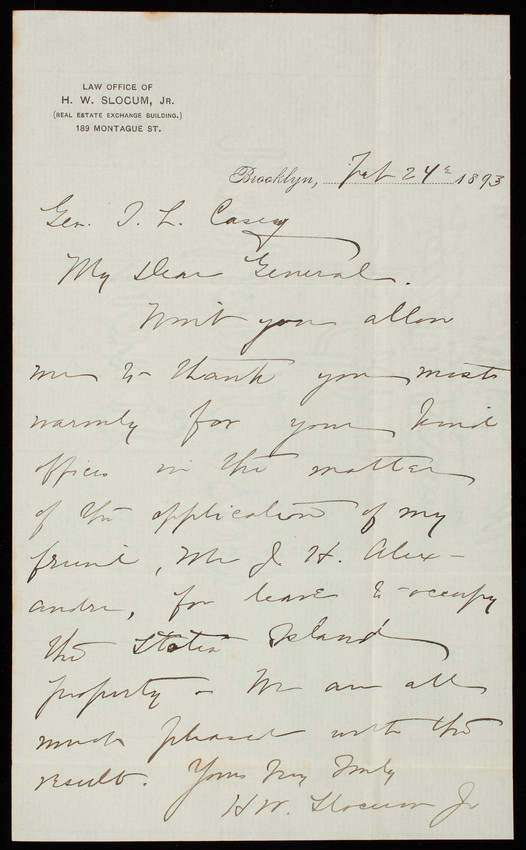 LAW OFFICE OF
H. W. SLOCUM, JR.
(REAL ESTATE EXCHANGE BUILDING.)
189 MONTAGUE ST.
Brooklyn, Feb 24th 1893
Gen. T. L. Casey
My Dear General.
Won't you allow
me to thank you most
warmly for your kind
offices in the matter
of the application of my
friend, Mr J. H. Alex-
andre, for leave to occupy
the Staten Island
property - We are all
much pleased with the
result. Yours Very Truly
H W. Slocum Jr